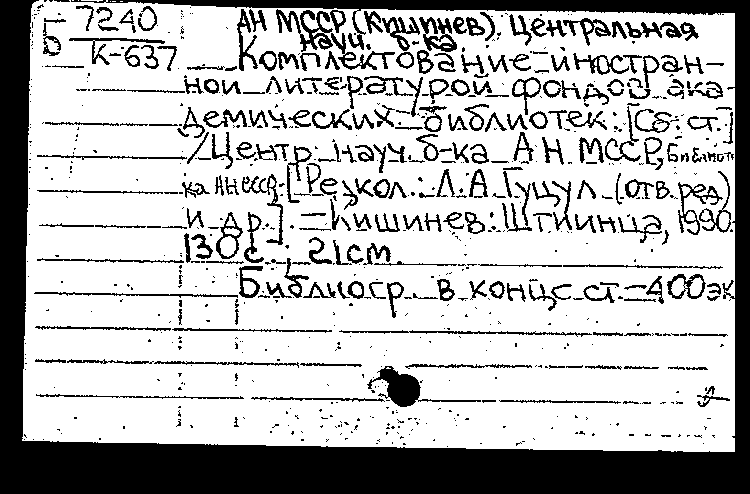 Б 7240
К-637
АН МССР (Кишинев). Центральная
науч. б-ка
Комплектование иностран-
ной литературой фондов ака-
демических библиотек: [Сб. ст.]
/Центр. науч. б-ка АН МССР, Библиоте
ка АН СССР; [Редкол.: Л.А. Гуцул (отв. ред)
и др.]. - Кишинев: Штиинца, 1990.
130 с.; 21 см.
Библиогр. в конце ст. - 400 эк